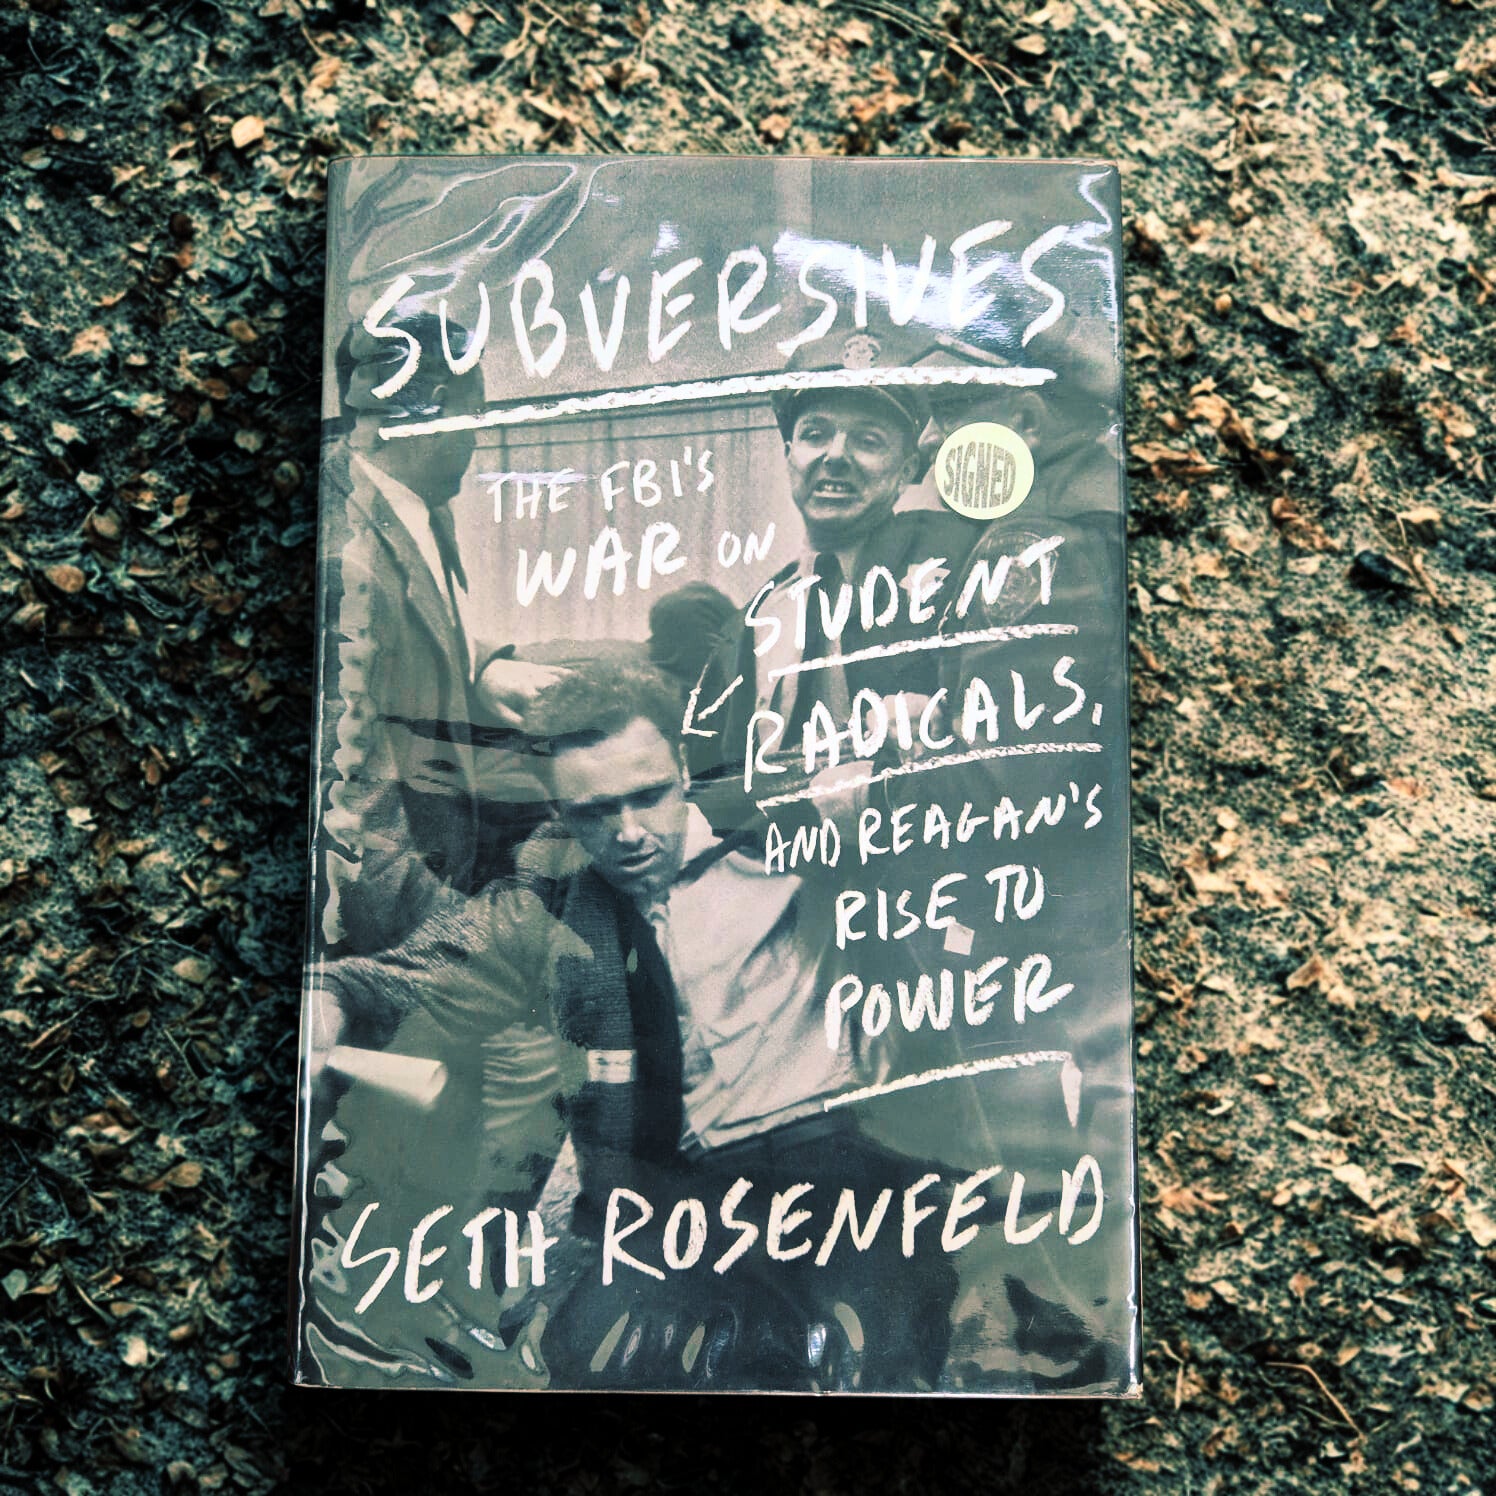 SUBVERSIVES
THE FBI'S
WAR ON
SIGNED
STUDENT
RADICALS,
AND REAGAN'S
RISE TO
POWER
SETH ROSENFELD